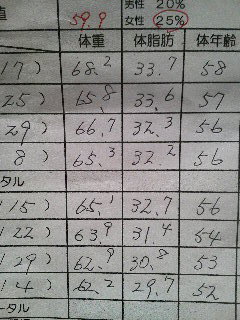 値 59.9 男性 20%
女性 25%
体重 体脂肪 体年齢
17) 68.2 33.7 58
25) 65.8 33.6 57
29) 66.7 32.3 56
8) 65.3 32.2 56
タル
15) 65.1 32.7 56
22) 63.9 31.4 54
29) 62.9 30.8 53
14) 62.2 29.7 52
ータル